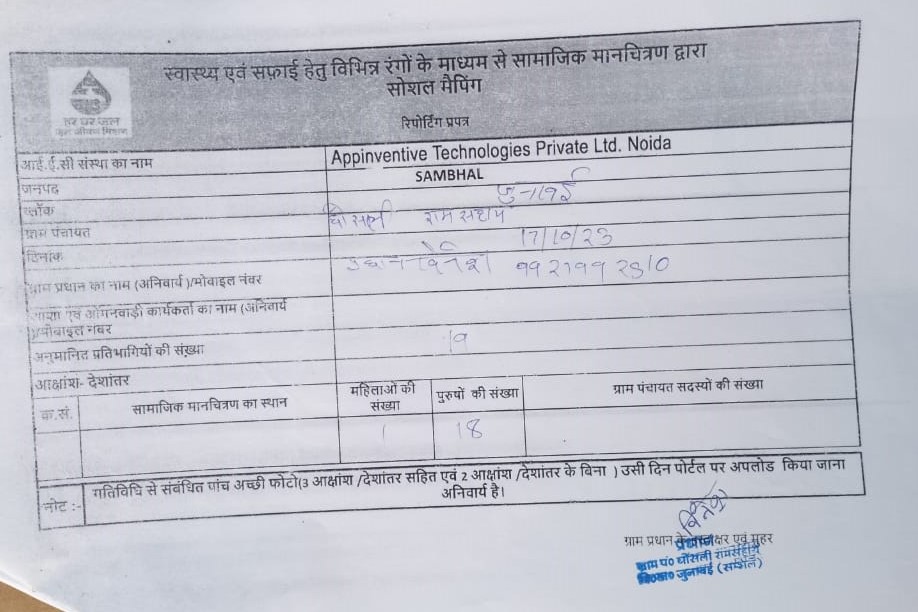 स्वास्थ्य एवं सफ़ाई हेतु विभिन्न रंगों के माध्यम से सामाजिक मानचित्रण द्वारा
सोशल मैपिंग
हर घर जल
जल जीवन मिशन
रिपोर्टिंग प्रपत्र
आई.ई.सी संस्था का नाम Appinventive Technologies Private Ltd. Noida
जनपद SAMBHAL
ब्लॉक जुनावई
ग्राम पंचायत राम सहाय
दिनांक 17/10/23
ग्राम प्रधान का नाम (अनिवार्य )/मोबाइल नंवर
आशा एवं आँगनवाड़ी कार्यकर्ता का नाम (अनिवार्य
)/मोबाइल नंवर
अनुमानित प्रतिभागियों की संख्या 19
आक्षांश- देशांतर
क्र.सं. सामाजिक मानचित्रण का स्थान महिलाओं की संख्या पुरुषों की संख्या ग्राम पंचायत सदस्यों की संख्या
1 18
नोट :- गतिविधि से संबंधित पांच अच्छी फोटो(3 आक्षांश /देशांतर सहित एवं 2 आक्षांश /देशांतर के बिना ) उसी दिन पोर्टल पर अपलोड किया जाना
अनिवार्य है।
ग्राम प्रधान के हस्ताक्षर एवं मुहर
प्रधान
ग्राम पं० घोंसली रामसहाय
वि०ख० जुनावई (सम्भल)